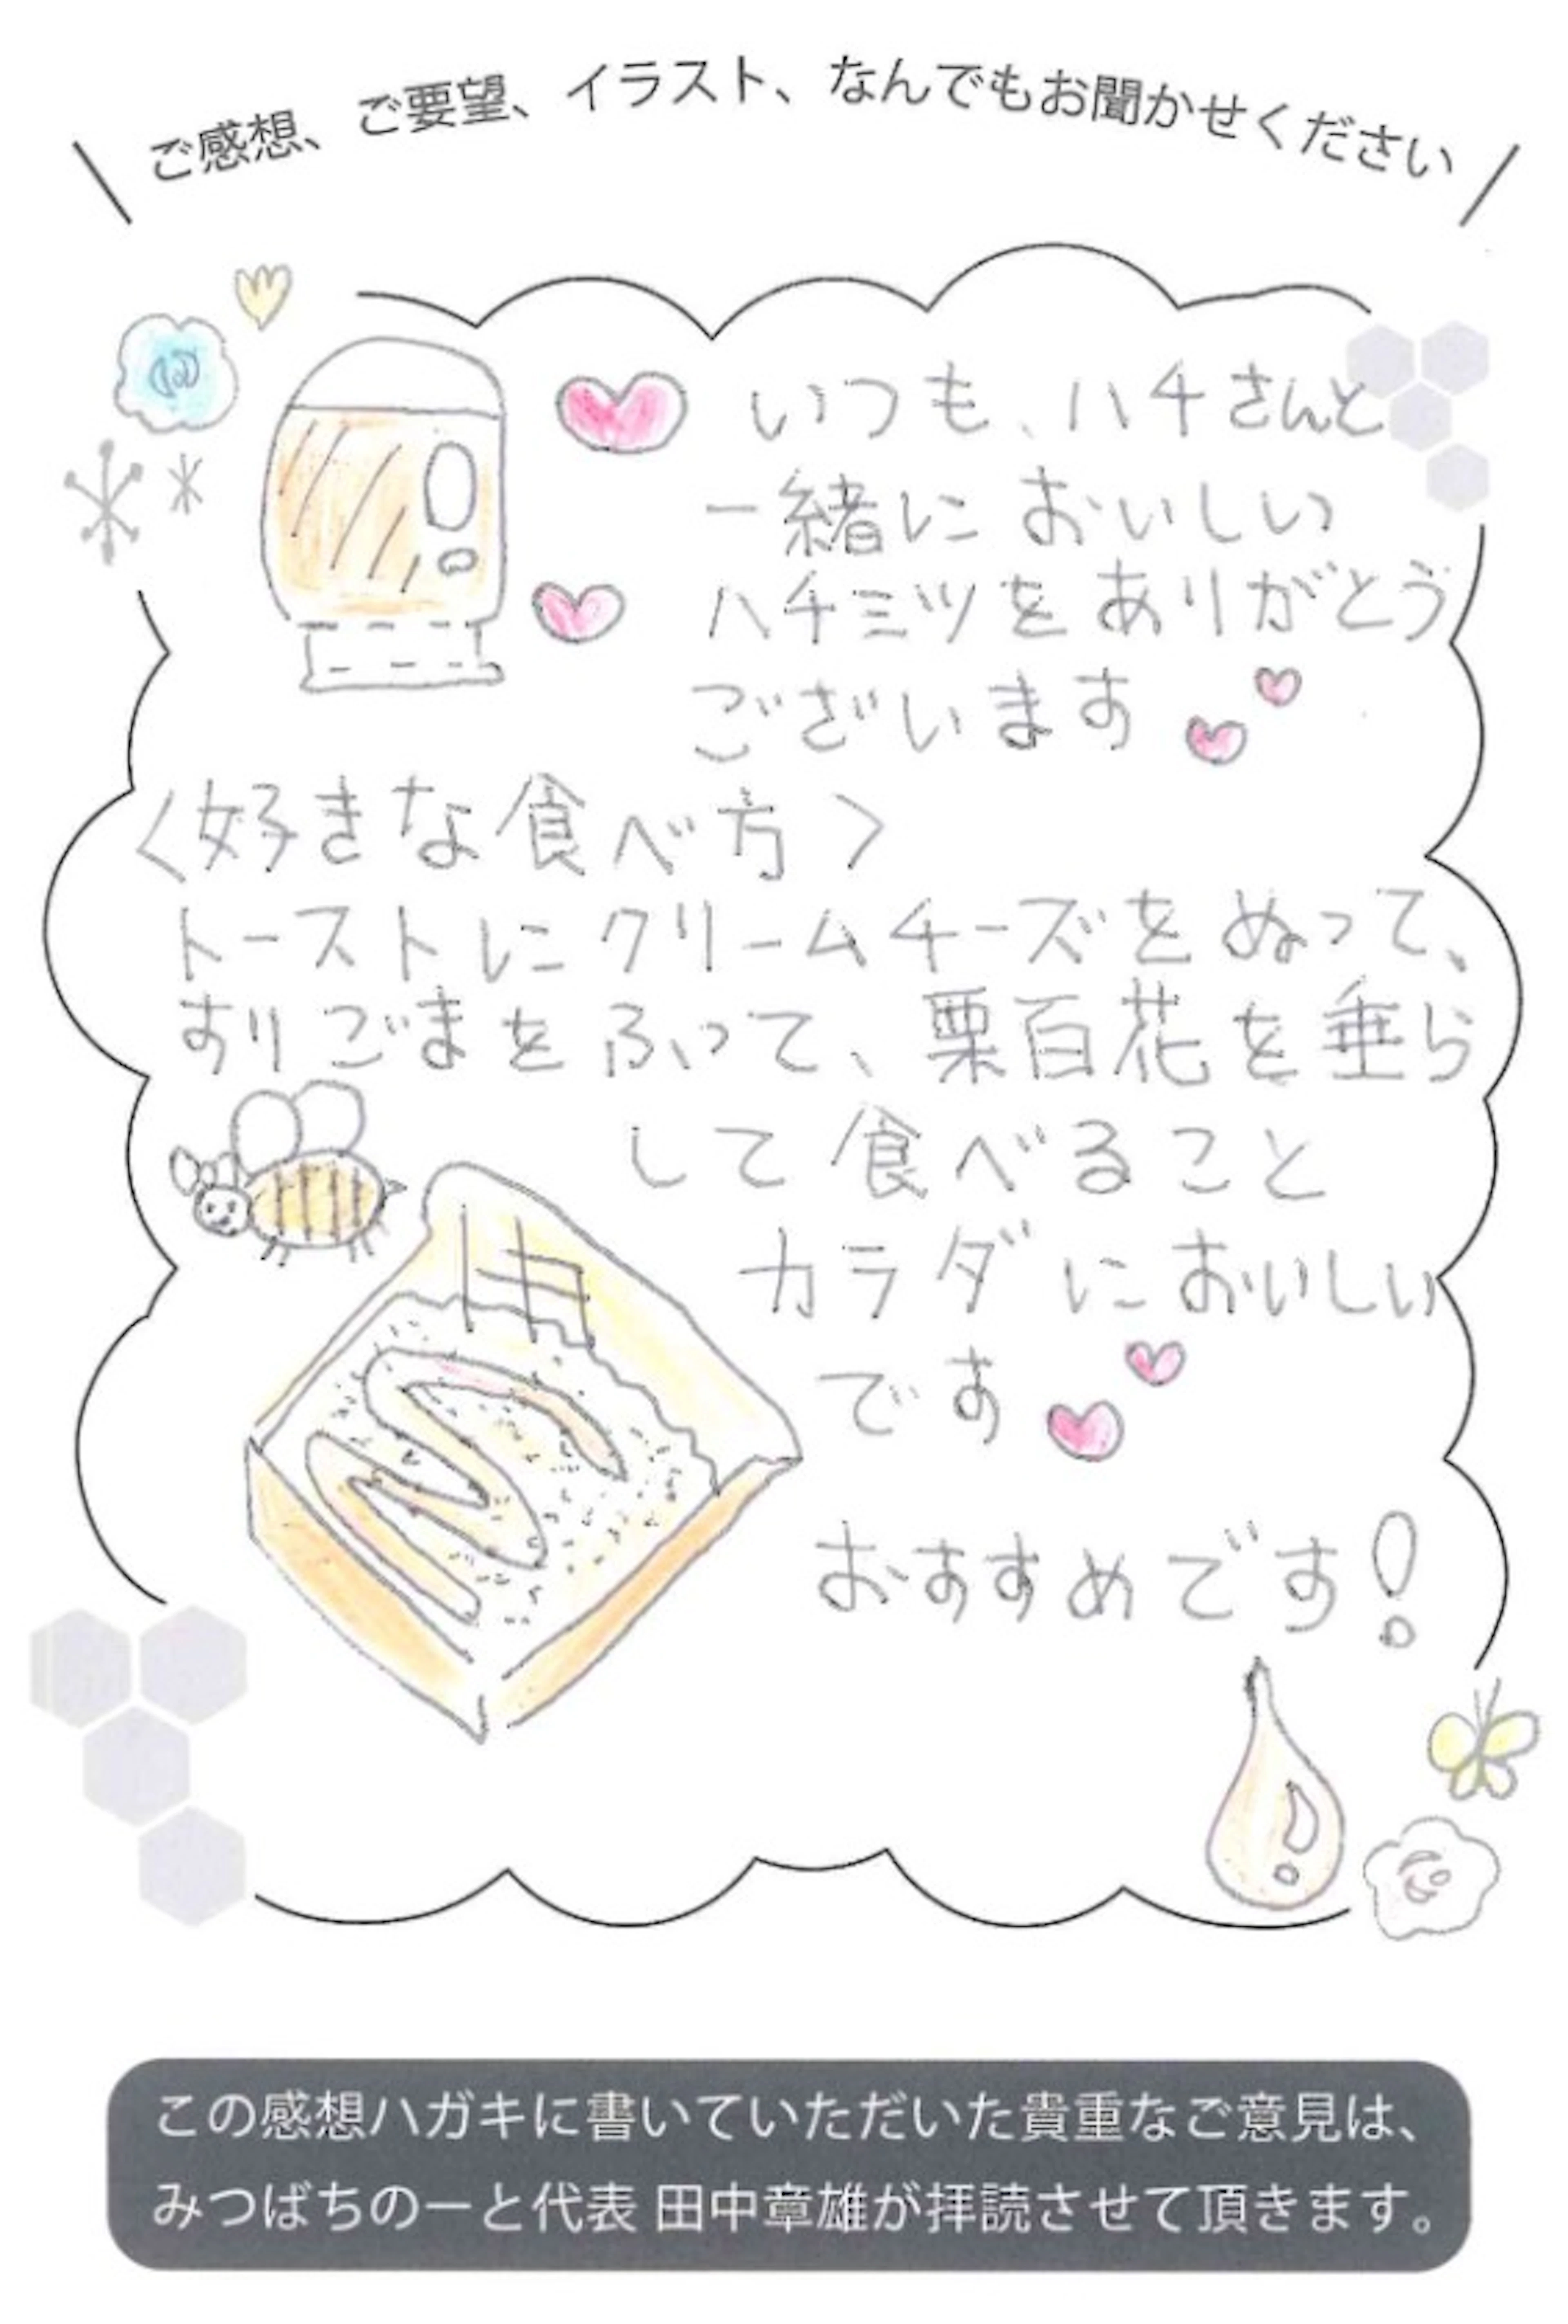 ご感想、ご要望、イラスト、なんでもお聞かせください
いつも、ハチさんと
一緒においしい
ハチミツをありがとう
ございます
〈好きな食べ方〉
トーストにクリームチーズをぬって、
すりごまをふって、栗百花を垂ら
して食べること
カラダにおいしい
です
おすすめです!
この感想ハガキに書いていただいた貴重なご意見は、
みつばちのーと代表 田中章雄が拝読させて頂きます。